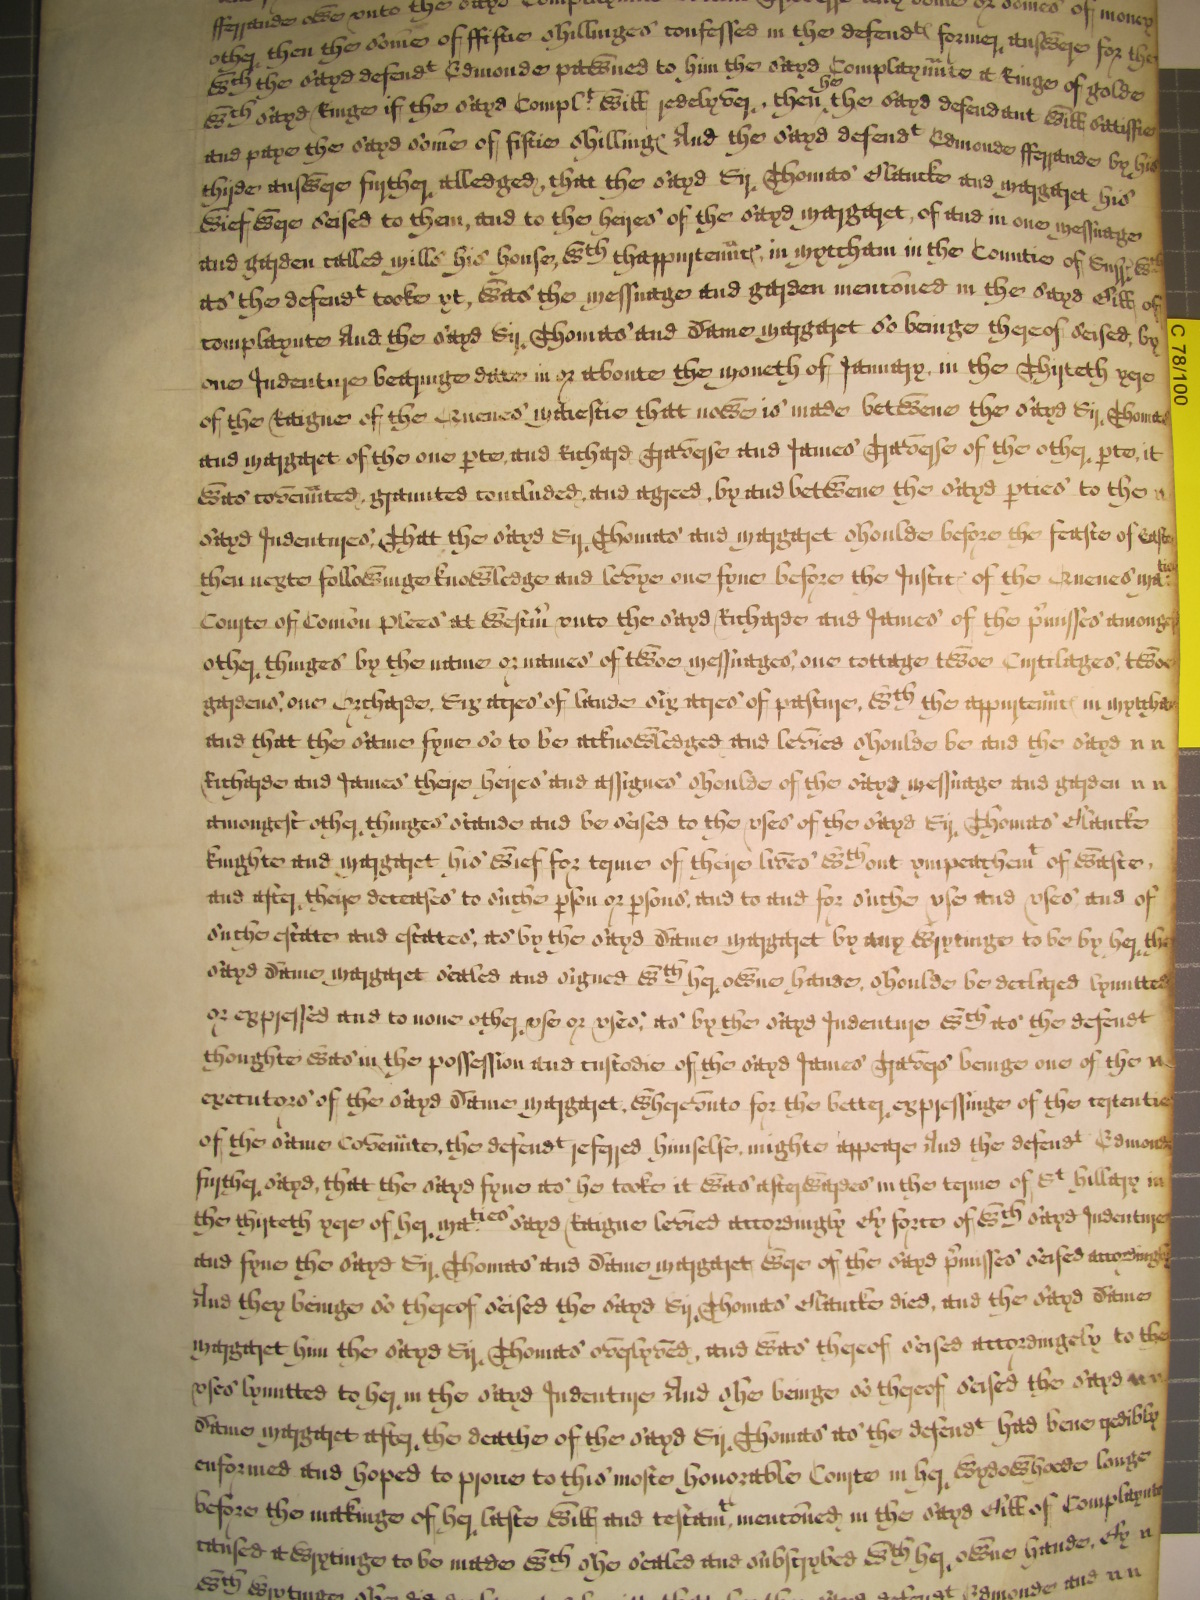 fferrande owe vnto the sayd Complaynnte any some or somes of money
other, then the som̄e of ffiftie shillinges confessed in the defendt former answere for the
wth the sayd defendt Edmonde pawned to him the sayd Complaynn̄te a Ringe of golde
wth sayd Ringe if the sayd Complt will redelyver, then he the sayd defendant will satisfie
and paye the sayd som̄e of fiftie shilling And the sayd defendt Edmonde fferrande by his
thirde answere further alledged, that the sayd Sir Thomas Blancke and margaret his
wief were seised to them, and to the heires of the sayd margaret, of and in one messuage
and garden called mills his house, wth thappurten̄nc, in mytcham in the Countie of Surr wch
as the defendt tooke yt, was the messuage and garden menc̄oned in the sayd Bill of
complaynte And the sayd Sir Thomas and Dame margaret so beinge thereof seised, by
one Indenture bearinge date in or aboute the moneth of January, in the Thirteth yere
of the Raigne of the Quenes maiestie that nowe is made betwene the sayd Sir Thomas
and margaret of the one p̱te, and Richard Traverse and James Traverse of the other p̱te, it
was coven̄nted, graunted concluded, and agreed, by and betwene the sayd p̱ties to the n
sayd Indentures, That the sayd Sir Thomas and margaret shoulde before the feaste of Easter
then nexte followinge knowledge and levye one fyne before the Justic of the Quenes matie
Courte of Com̄on Plees at Westm̄ vnto the sayd Richarde and James of the p̄misses amongest
other thinges by the name or names of twoe messuages, one cottage twoe Curtilages, twoe
gardens, one Orcharde, Six acres of lande six acres of pasture, wth the appurten̄nc in mytcham
and that the same fyne so to be acknowledged and levied shoulde be and the sayd n n
Richarde and James theire heires and assignes shoulde of the sayd messuage and garden n n
amongest other thinges stande and be seised to the vses of the sayd Sir Thomas Blancke
knighte and margaret his wief for terme of theire lives wthout ympeachemt of waste,
and after theire deceases to suche p̱son or p̱sons, and to and for suche vse and vses, and of
suche estate and estates, as by the sayd Dame margaret by any wrytinge to be by her the
sayd Dame margaret sealed and signed wth her owne hande, shoulde be declared lymitted
or expressed and to none other vse or vses, as by the sayd Indenture wch as the defendt
thoughte was in the possession and custodie of the sayd James Travers beinge one of the n
executors of the sayd Dame margaret, wherevnto for the better expressinge of the certentie
of the same Coven̄nte, the defendt referred himselfe, mighte appeare And the defendt Edmonde
further sayd, that the sayd fyne as he tooke it was afterwardes in the terme of St hillary in
the thirteth yere of her maties sayd Raigne levied accordingly By force of wch sayd Indenture
and fyne the sayd Sir Thomas and Dame margaret were of the sayd p̄misses seised accordingly
And they beinge so thereof seised the sayd Sir Thomas Blancke died, and the sayd Dame
margaret him the sayd Sir Thomas overlyved, and was thereof seised accordingely to the
vses lymitted to her in the sayd Indenture And she beinge so thereof seised the sayd n n
Dame margaret after the deathe of the sayd Sir Thomas as the defendt had bene credibly
enformed and hoped to prove to this moste honorable Courte in her wydowhoode longe
before the makinge of her laste will and testamt, menc̄oned in the sayd Bill of Complaynte
caused a wrytinge to be made wch she sealed and subscrybed wth her owne hande, By n
wch wrytinge she did defendt Edmonde and n n
C 78/100